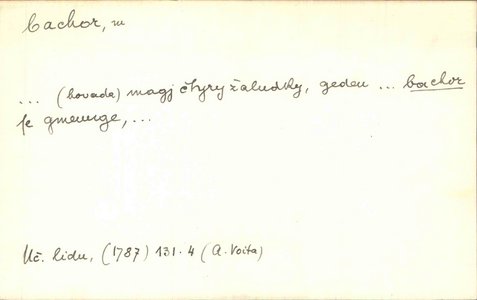 bachor, m
... (hovada) magj čtyry žaludky, geden ... bachor
se gmenuge, ...
Uč. lidu, (1787) 131.4 (A. Voita)